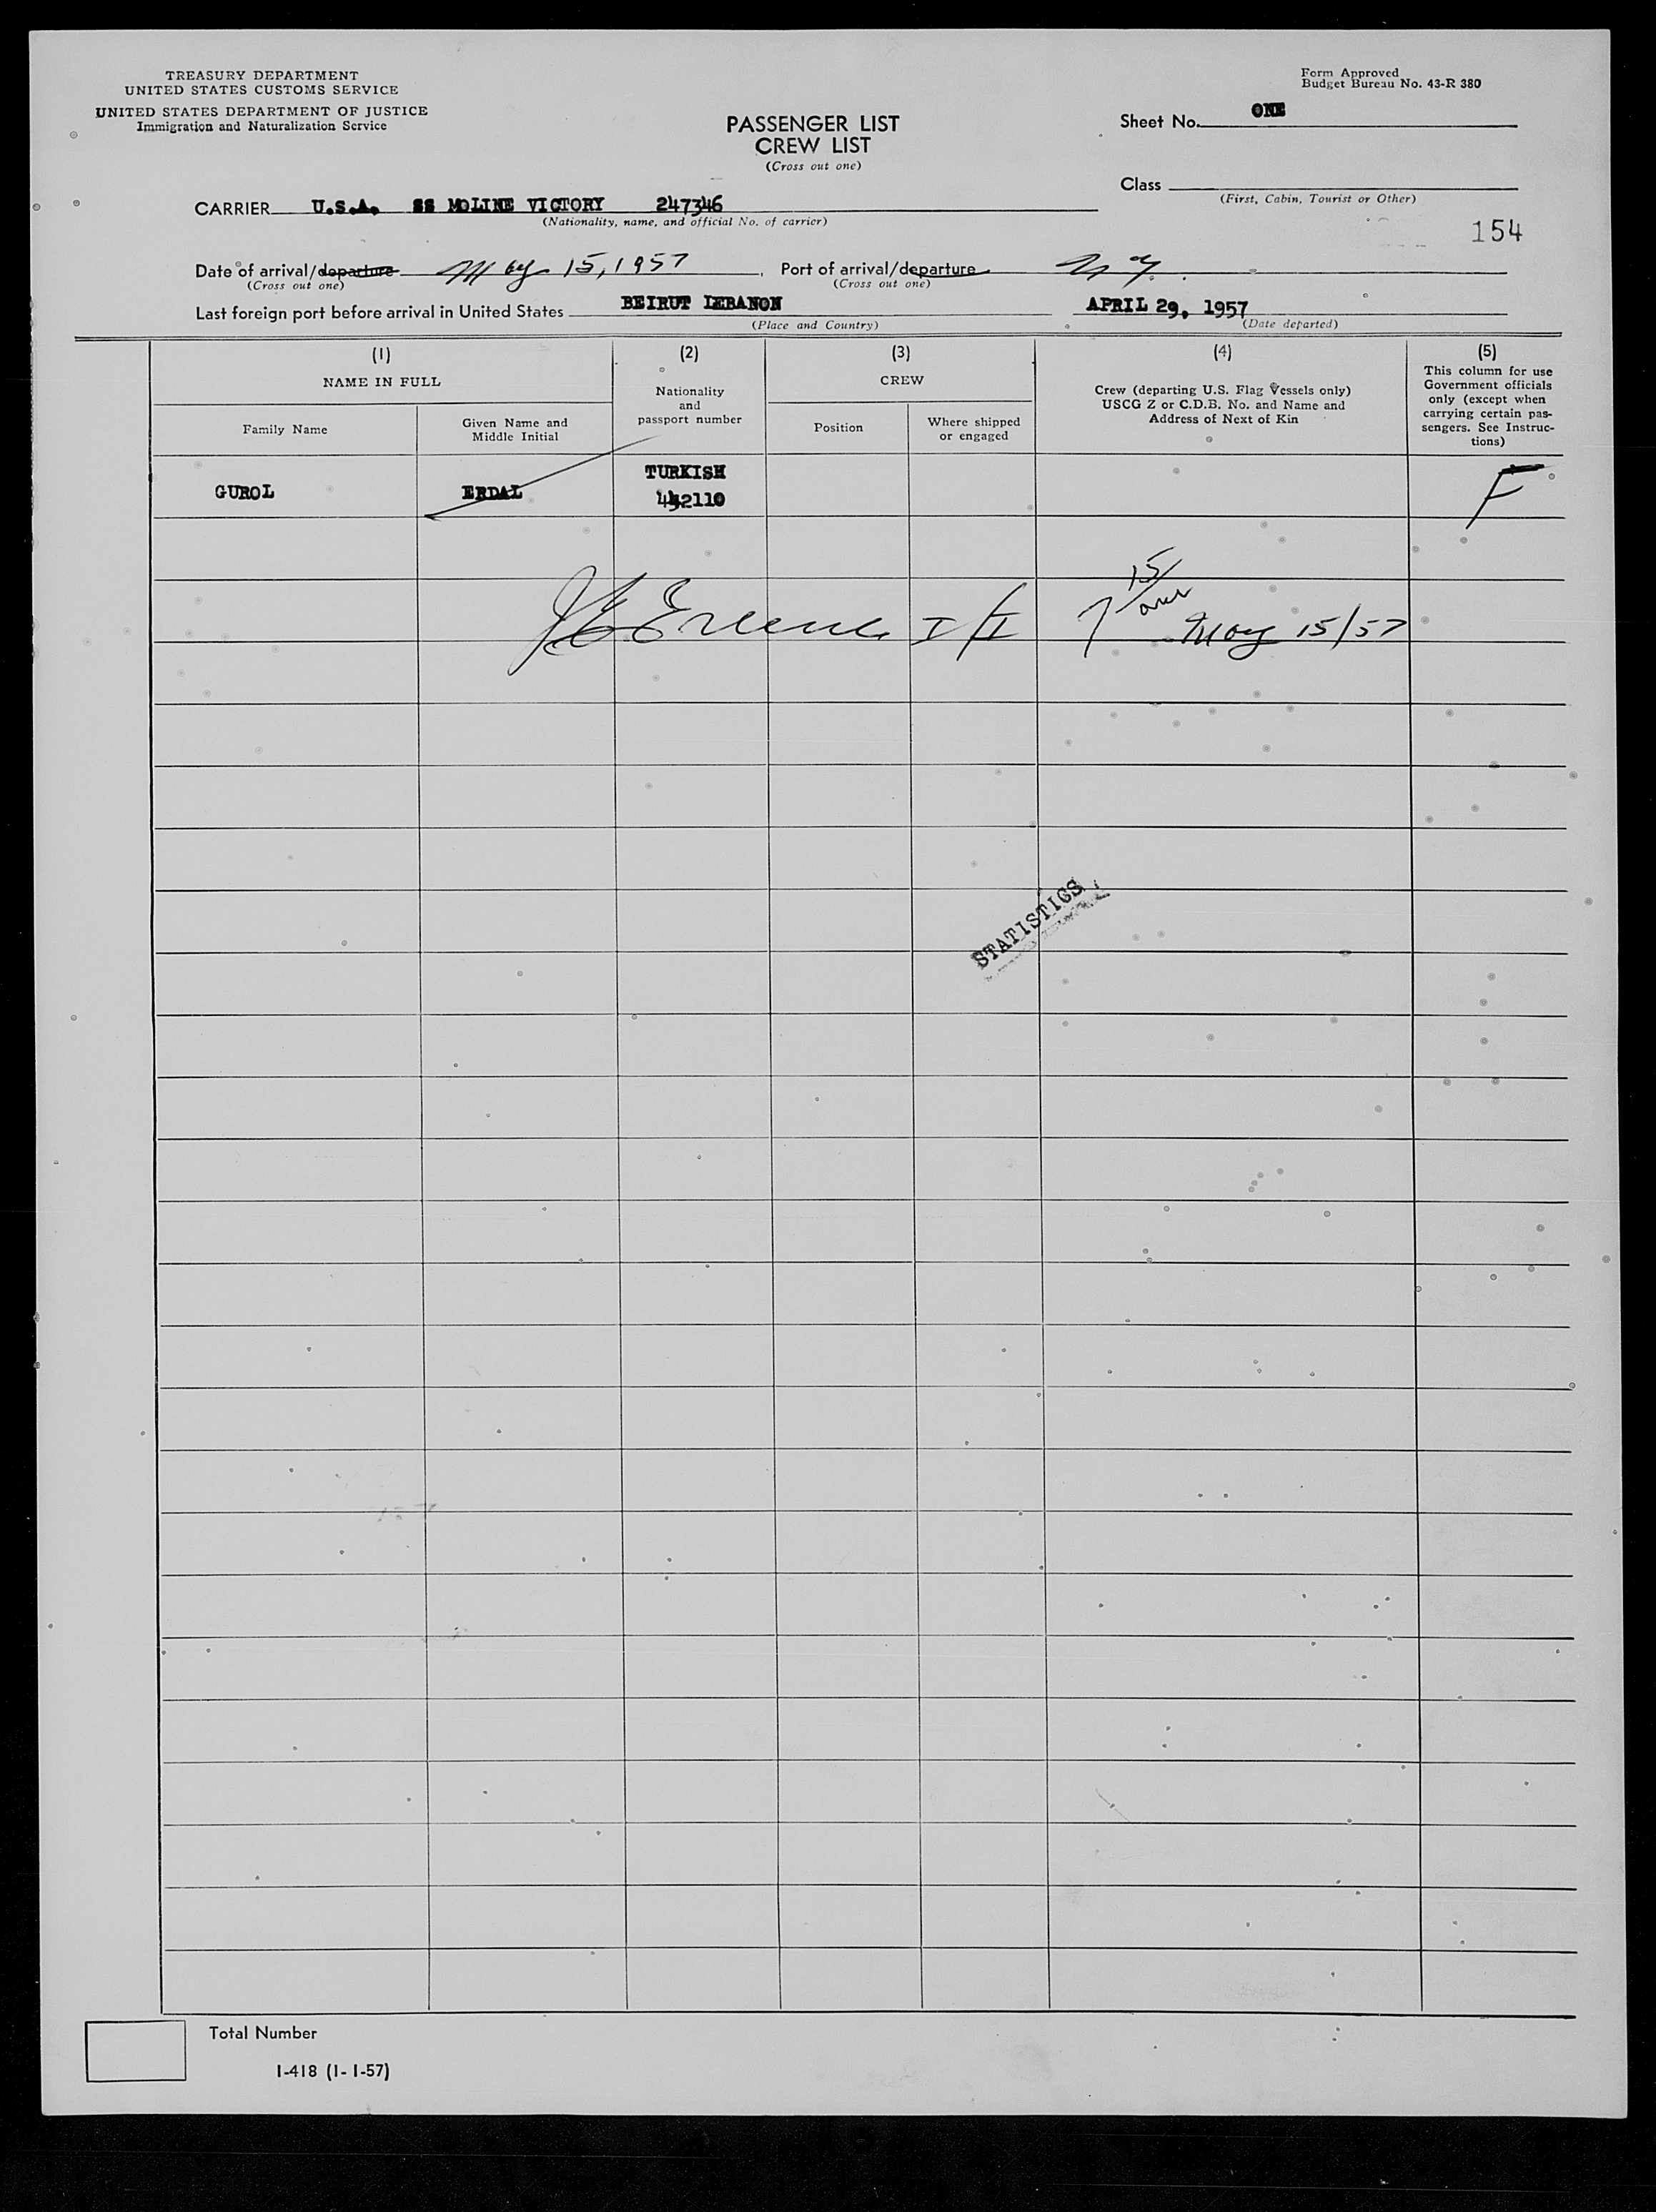 TREASURY DEPARTMENT
UNITED STATES CUSTOMS SERVICE
UNITED STATES DEPARTMENT OF JUSTICE
Immigration and Naturalization Service
Form Approved
Budget Bureau No. 43-R 380
PASSENGER LIST
CREW LIST
(Cross out one)
Sheet No. ONE
Class
(First, Cabin, Tourist or Other)
CARRIER U.S.A. SS MOLINE VICTORY 247346
(Nationality, name, and official No. of carrier)
154
Date of arrival/departure May 15, 1957, Port of arrival/departure N.Y.
(Cross out one) (Cross out one)
Last foreign port before arrival in United States BEIRUT LEBANON APRIL 29, 1957
(Place and Country) (Date departed)
(1) (2) (3) (4) (5)
NAME IN FULL
Family Name
Given Name and
Middle Initial
Nationality
and
passport number
CREW
Position
Where shipped
or engaged
Crew (departing U.S. Flag Vessels only)
USCG Z or C.D.B. No. and Name and
Address of Next of Kin
This column for use
Government officials
only (except when
carrying certain pas-
sengers. See Instruc-
tions)
GUROL ERDAL TURKISH F
2110
15/
May 15/57
STATISTICS
Total Number
I-418 (1-1-57)